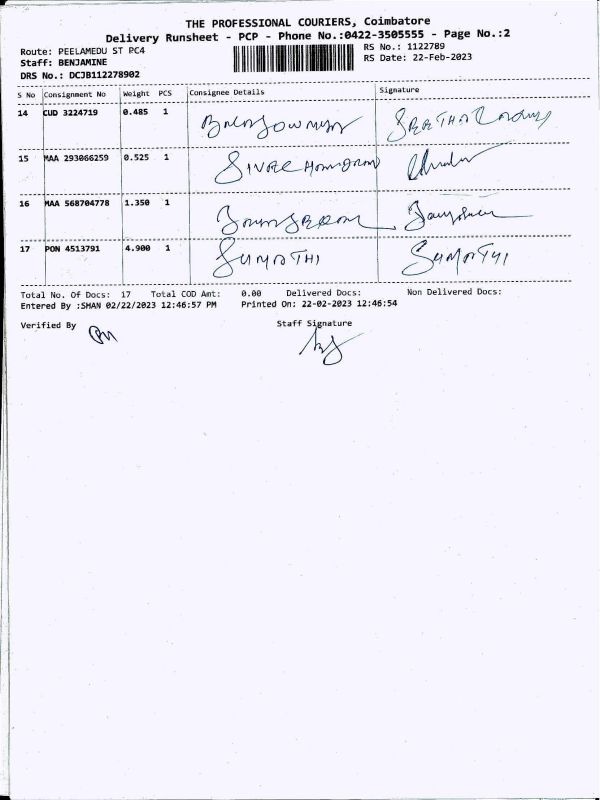 THE PROFESSIONAL COURIERS, Coimbatore
Delivery Runsheet - PCP - Phone No.:0422-3505555 - Page No.:2
Route: PEELAMEDU ST PC4
RS No.: 1122789
Staff: BENJAMINE
RS Date: 22-Feb-2023
DRS No.: DCJB112278902
S No Consignment No Weight PCS Consignee Details Signature
14 CUD 3224719 0.485 1
15 MAA 293066259 0.525 1
16 MAA 568704778 1.350 1
17 PON 4513791 4.900 1 SUMATHI SUMATHI
Total No. Of Docs: 17 Total COD Amt: 0.00 Delivered Docs: Non Delivered Docs:
Entered By :SHAN 02/22/2023 12:46:57 PM Printed On: 22-02-2023 12:46:54
Verified By Staff Signature